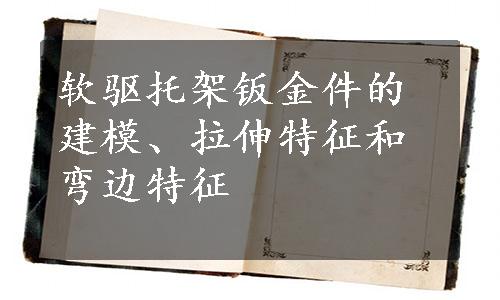 软驱托架钣金件的
建模、拉伸特征和
弯边特征